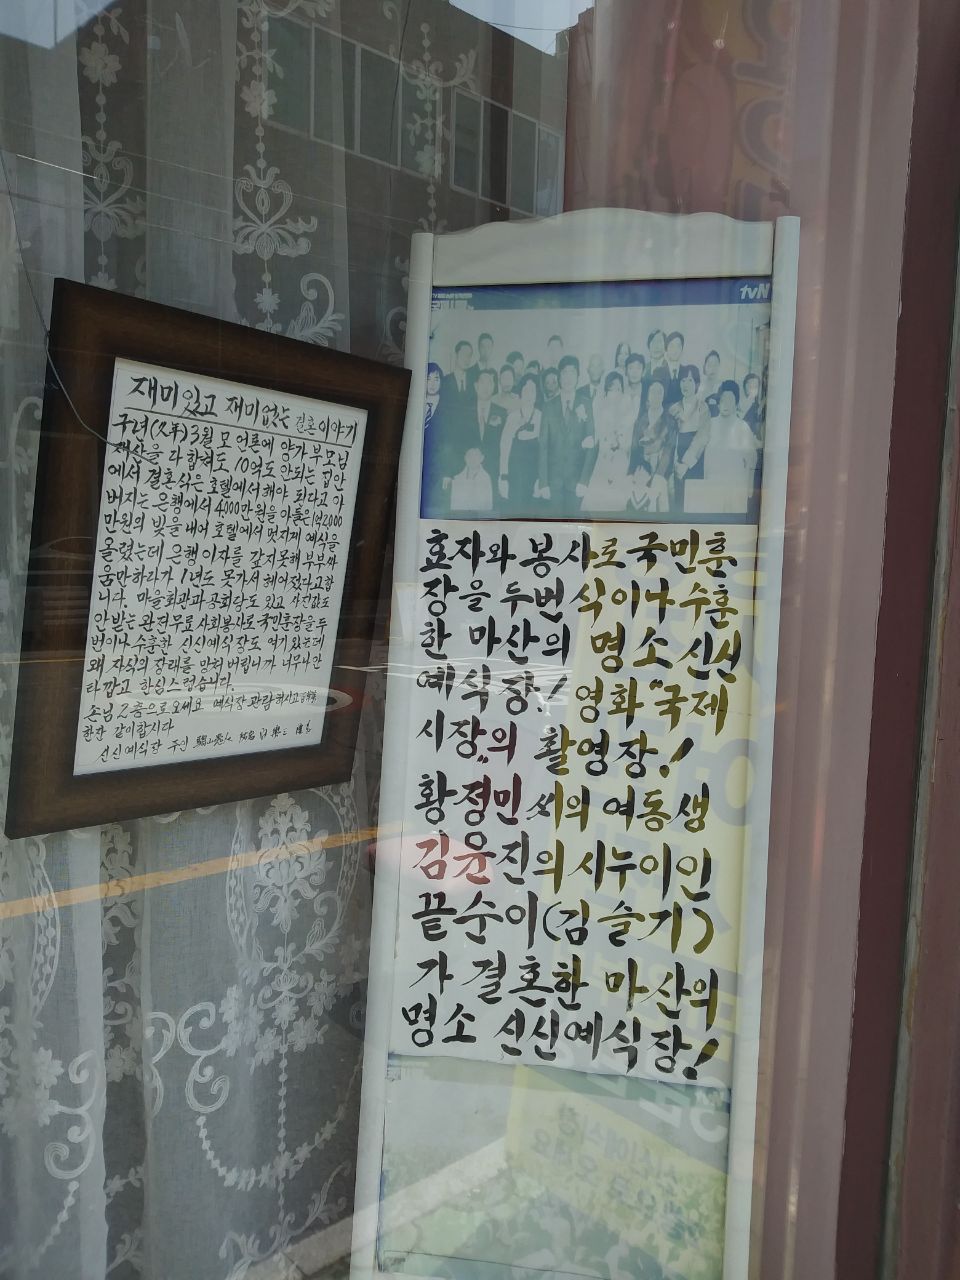 재미있고 재미없는 결혼이야기
구년(久年) 3월 모 언론에 양가 부모님
재산을 다 합쳐도 10억도 안되는 집안
에서 결혼식은 호텔에서 해야 된다고 아
버지는 은행에서 4,000만원을 아들은 1억2000
만원의 빚을 내어 호텔에서 멋지게 예식을
올렸는데 은행이자를 갚지못해 부부싸
움만하라가 1년도 못가서 헤어졌다고합
니다. 마을회관과 공회당도 있고 사진값도
안받는 완전무료 사회봉사로 국민훈장을 두
번이나 수훈한 신신예식장도 여기있는데
왜 자식의 장래를 망쳐 버립니까 너무나 안
타깝고 한심스럽습니다.
손님 2층으로 오세요 예식장 관람하시고
한잔 같이합시다
신신예식장 주인
tvN
효자와 봉사로 국민훈
장을 두번 식이나 수훈
한 마산의 명소 신신
예식장! 영화 "국제
시장"의 촬영장!
황정민 씨의 여동생
김윤진의 시누이인
끝순이(김슬기)
가 결혼한 마산의
명소 신신예식장!